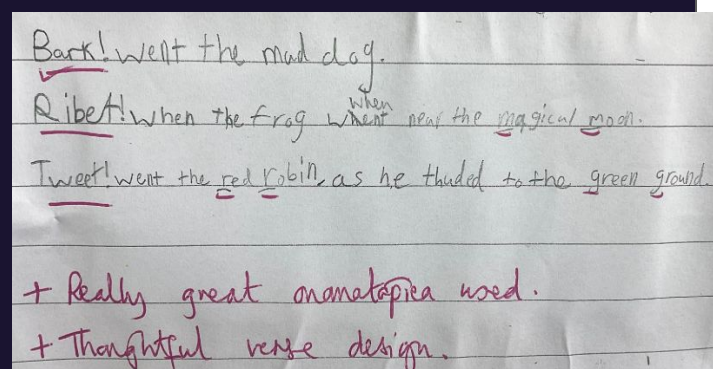 Bark! went the mad dog.
when
Ribet! when the frog whent near the magical moon.
Tweet! went the red robin, as he thuded to the green ground.
+ Really great onomatopiea used.
+ Thoughtful verse design.